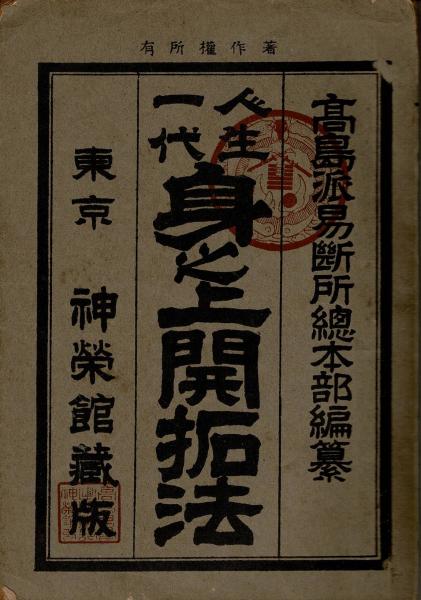 著作權所有
高島派易斷所總本部編纂
人生
一代
身之上開拓法
東京 神榮館藏版